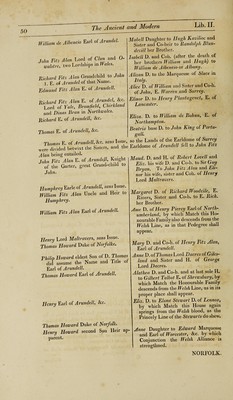 50 The Ancient and Modern Lib. II.
William de Albeneio Earl of Arundel.
Mabell Daughter to Hugh Kevilioc and
Sister and Co-heir to Randolph Blun-
devill her Brother.
John Fitz Alan Lord of Clun and O-
swaldtre, two Lordships in Wales.
Isabell D. and Coh. (after the death of
her brothers William and Hugh) to
William de Albeneio or Albeny.
Richard Fitz Alan Grandchild to John
1. E. of Arundel of that Name.
Alison D. to the Marquesse of Sluce in
Italy.
Edmund Fitz Alan E. of Arundell.
Alice D. of William and Sister and Coh.
of John, E. Warren and Surrey.
Richard Fitz Alan E. of Arundel, &c.
Lord of Yale, Bromfield, Chirkland
and Dinas Bren in Northwales.
Elinor D. to Henry Plantagenet, E. of
Lancaster.
Richard E. of Arundell, &c.
Eliza. D. to William de Bohun, E. of
Northampton.
Thomas E. of Arundell, &c.
Beatrix base D. to John King of Portu-
gall.
Thomas E. of Arundell, &c. sans Issue, so the Lands of the Earldome of Surrey
were decided betwixt the Sisters, and the Earldome of Arundell fell to John Fitz
Alan being entailed.
John Fitz Alan E. of Arundell, Knight
of the Garter, great Grandchild to
John.
Maud. D. and H. of Robert Lovell and
Eliz. his wife D. and Coh. to Sir Guy
Bryan.
his wife, sister and Coh. of Henry
Lord Maltravers.
Humphrey Earle of Arundell, sans Issue.
William Fitz Alan Uncle and Heir to
Humphrey.
Margaret D. of Richard Woodvile, E.
Rivers, Sister and Co-h. to E. Rich.
her Brother.
William Fitz Alan Earl of Arundell.
Ann D. of Henry Piercy Earl of North-
umberland, by which Match this Ho-
nourable Family also descends from the
Welsh Line, as in that Pedegree shall
appear.
Henry Lord Maltravers, sans Issue.
Thomas Howard Duke of Norfolke.
Mary D. and Co-h. of Henry Fitz Alan,
Earl of Arundell.
Philip Howard eldest Son of D. Thomas
did assume the Name and Title of
Earl of Arundell.
Anne D. of Thomas Lord Dacres of Gilse-
land and Sister and H. of George
Lord Dacres.
Thomas Howard Earl of Arundell.
Alathea D. and Co-h. and at last sole H.
to Gilbert Talbot E. of Shrewsbury, by
which Match the Honourable Family
descends from the Welsh Line, as in its
proper place shall appear.
Henry Earl of Arundell, &c.
Eliz. D. to Esme Stewart D. of Lennox,
by which Match this House again
springs from the Welsh blood, as the
Princely Line of the Stewarts do shew.
Thomas Howard Duke of Norfolk.
Henry Howard second Son Heir ap-
parent.
Anne Daughter to Edward Marquesse
and Earl of Worcester, &c. by which
Conjunction the Welsh Alliance is
strengthened.
NORFOLK.